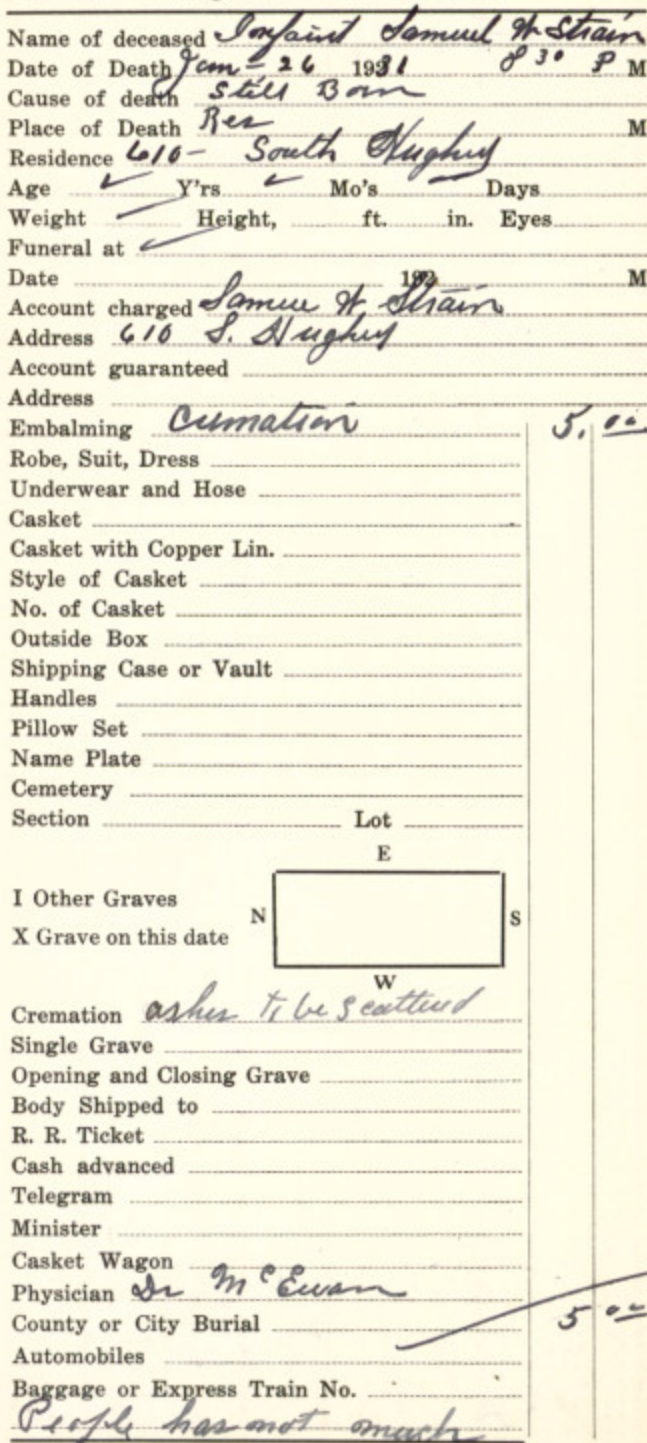 Name of deceased Infaint Samuel W. Strain
Date of Death Jan - 26 1931 8 30 P M
Cause of death Still Born
Place of Death Res M
Residence 610 - South Hughey
Age Y'rs Mo's Days
Weight Height, ft. in. Eyes
Funeral at
Date 192 M
Account charged Samuel W. Strain
Address 610 S. Hughey
Account guaranteed
Address
Embalming Cremation 5. 00
Robe, Suit, Dress
Underwear and Hose
Casket
Casket with Copper Lin.
Style of Casket
No. of Casket
Outside Box
Shipping Case or Vault
Handles
Pillow Set
Name Plate
Cemetery
Section Lot
E
I Other Graves
N S
X Grave on this date
W
Cremation ashes to be scattered
Single Grave
Opening and Closing Grave
Body Shipped to
R. R. Ticket
Cash advanced
Telegram
Minister
Casket Wagon
Physician Dr McEwan
County or City Burial 5 00
Automobiles
Baggage or Express Train No.
People has not much